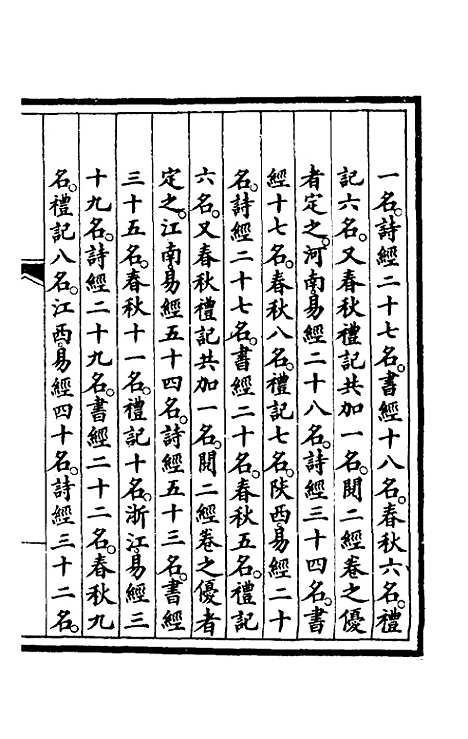 一名。詩經二十七名。書經十八名。春秋六名。禮
記六名。又春秋禮記共加一名。閱二經卷之優
者定之。河南易經二十八名。詩經三十四名。書
經十七名。春秋八名。禮記七名。陝西易經二十
名。詩經二十七名。書經二十名。春秋五名。禮記
六名。又春秋禮記共加一名。閱二經卷之優者
定之。江南易經五十四名。詩經五十三名。書經
三十五名。春秋十一名。禮記十名。浙江易經三
十九名。詩經二十九名。書經二十二名。春秋九
名。禮記八名。江西易經四十名。詩經三十二名。